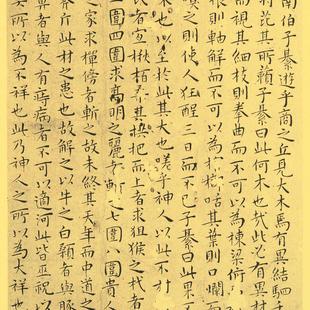 南伯子綦遊乎商之丘見大木焉有異結駟千
芘其所藾子綦曰此何木也哉此必有異材
而視其細枝則拳曲而不可以為棟梁俯
根則軸解而不可以為棺槨咶其葉則口爛而
之則使人狂酲三日而不已子綦曰此果不
木也以至於此其大也嗟乎神人以此不材
氏者宜楸栢桑其拱把而上者求狙猴之杙者
三圍四圍求高明之麗者斬之七圍八圍貴人
之家求樿傍者斬之故未終其天年而中道之
斧斤此材之患也故解之以牛之白顙者與豚
鼻者與人有痔病者不可以適河此皆巫祝以
矣所以為不祥也此乃神人之所以為大祥也